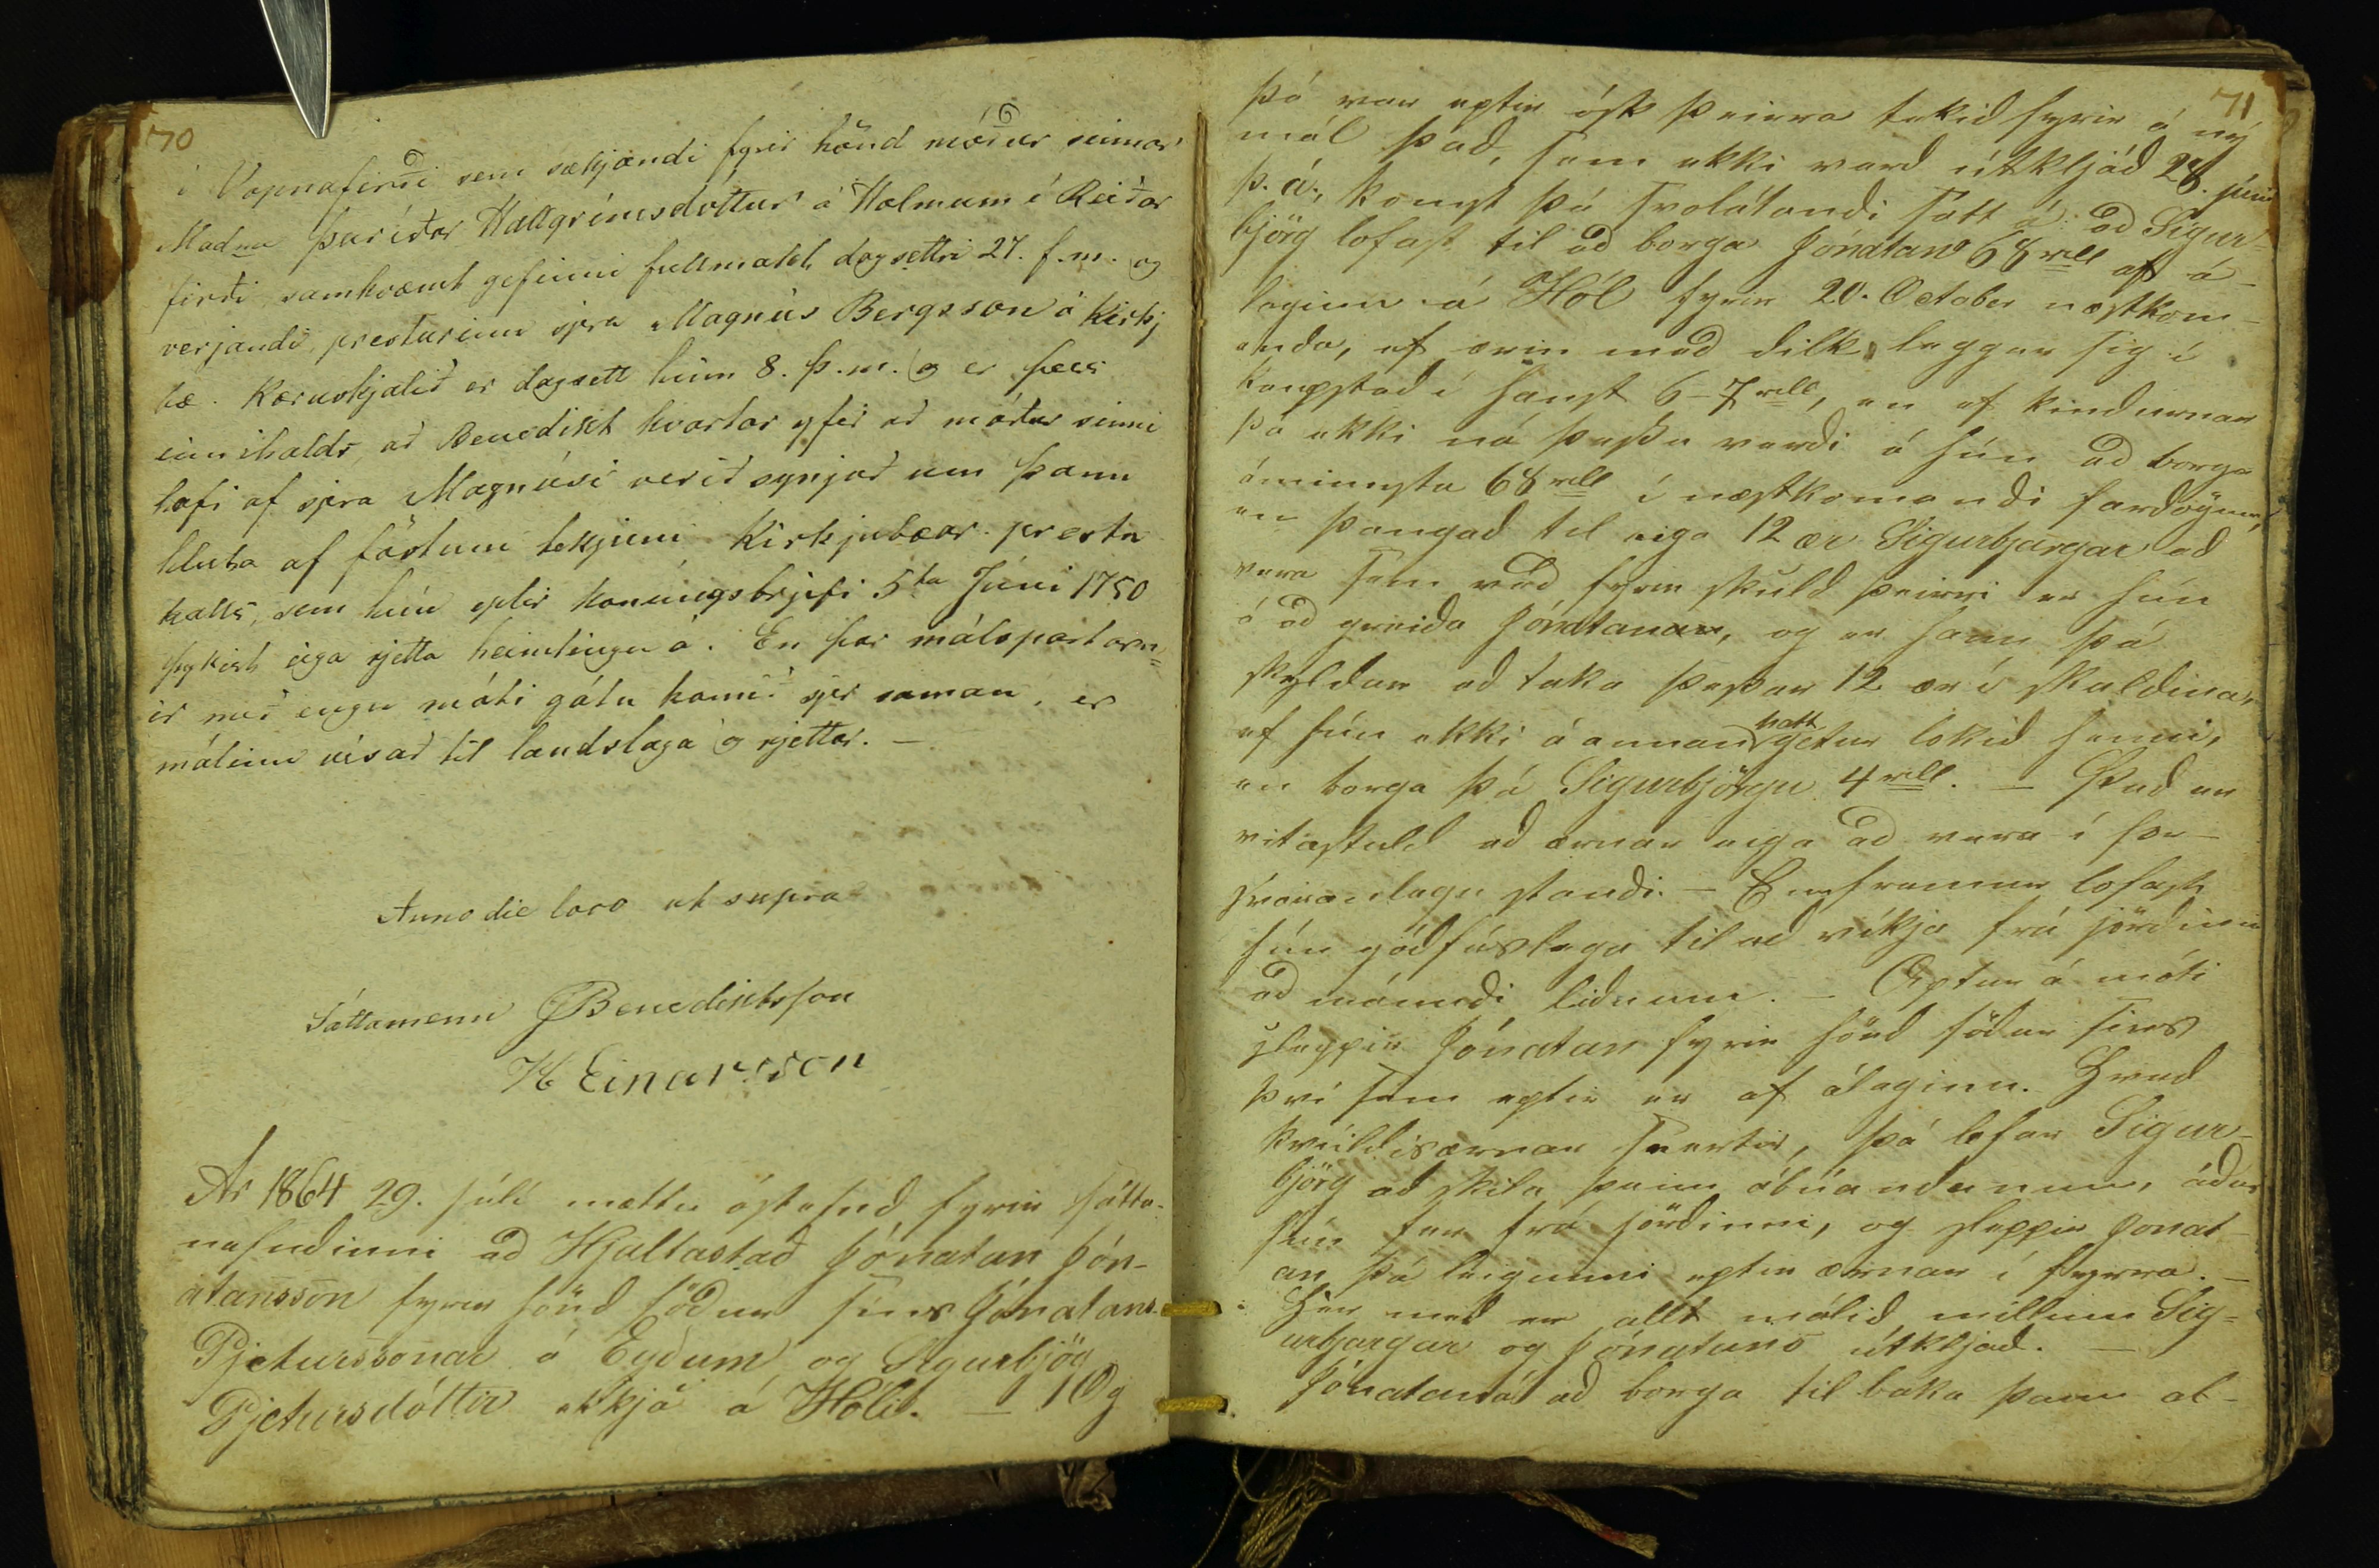 70
í Vopnafirði sem sækjandi fyrir hönd móður sinnar
Madme Þuríðar Hallgrímsdóttur á Hólmum í Reiðar
firði samkvæmt gefinni fullmakt, dagsettri 27. f.m. og
verjandi presturinn sjera Magnús Bergsson á Kirkj
bæ. Kæruskjalið er dagsett hinn 8. þ.m. og er þess
innihalds, að Benedikt kvartar yfir að móður sinni
hafi af sjera Magnúsi verið synjað um þann
hluta af föstum tekjum Kirkjubæar presta
kalls, sem hún eptir konúngsbrjefi 5ta Júní 1750
þykist eiga rjetta heimtingu á. En þar málspartarn=
ir með engu móti gátu komið sjer saman, er
málinu vísað til landslaga og rjettar. —
Anno die loco ut supra
Sáttamenn JBenediktsson
H Einarsson
Ár 1864 29. júlí mættu óstefnd fyrir sátta-
nefndinni að Hjaltastað Jónatan Jón-
atansson fyrir hönd föður síns Jónatans
Pjeturssonar á Eyðum og Sigurbjög
Pjetursdóttir ekkja á Hóli. — Og
71
þá var eptir ósk þeirra tekið fyrir á ný
mál það, sem ekki varð útkljáð 28. júní
þ. á., komst þá svolátandi sátt á: að Sigur=
björg lofast til að borga Jónatan 68 rdl af á-
laginu á Hól fyrir 20. October næstkom-
anda, ef ærin með dilk leggur sig í
kaupstað í haust 6-7 rdl, en ef kindurnar
þá ekki ná þessu verði á hún að borga
áminnstu 68 rdl í næstkomandi fardögum,
en þangað til eiga 12 ær Sigurbjargar að
vera sem veð fyrir skuld þeirri er hún
á að greiða Jónatani, og er hann þá
skyldur að taka þessar 12 ær í skuldina,
ef hún ekki á annan hátt getur lokið henni,
en borga þá Sigurbjörgu 4 rdl. — Það er
vitaskuld að ærnar eiga að vera í for-
svaranlegu standi. — Ennfremur lofast
hún góðfúslega til að víkja frá jörðinni
að mánuði liðnum. — Aptur á móti
sleppir Jónatan fyrir hönd föður síns
því sem eptir er af álaginu. Hvað
kvíildisærnar snertir, þá lofar Sigur-
björg að skila þeim ábúandanum, áður
hún fer frá jörðinni, og sleppir Jonat-
an þá leigunni eptir ærnar í fyrra. —
Hér með er allt málið millum Sig=
urbjargar og Jónatans útkljáð. —
Jónatan á að borga til baka þann al-